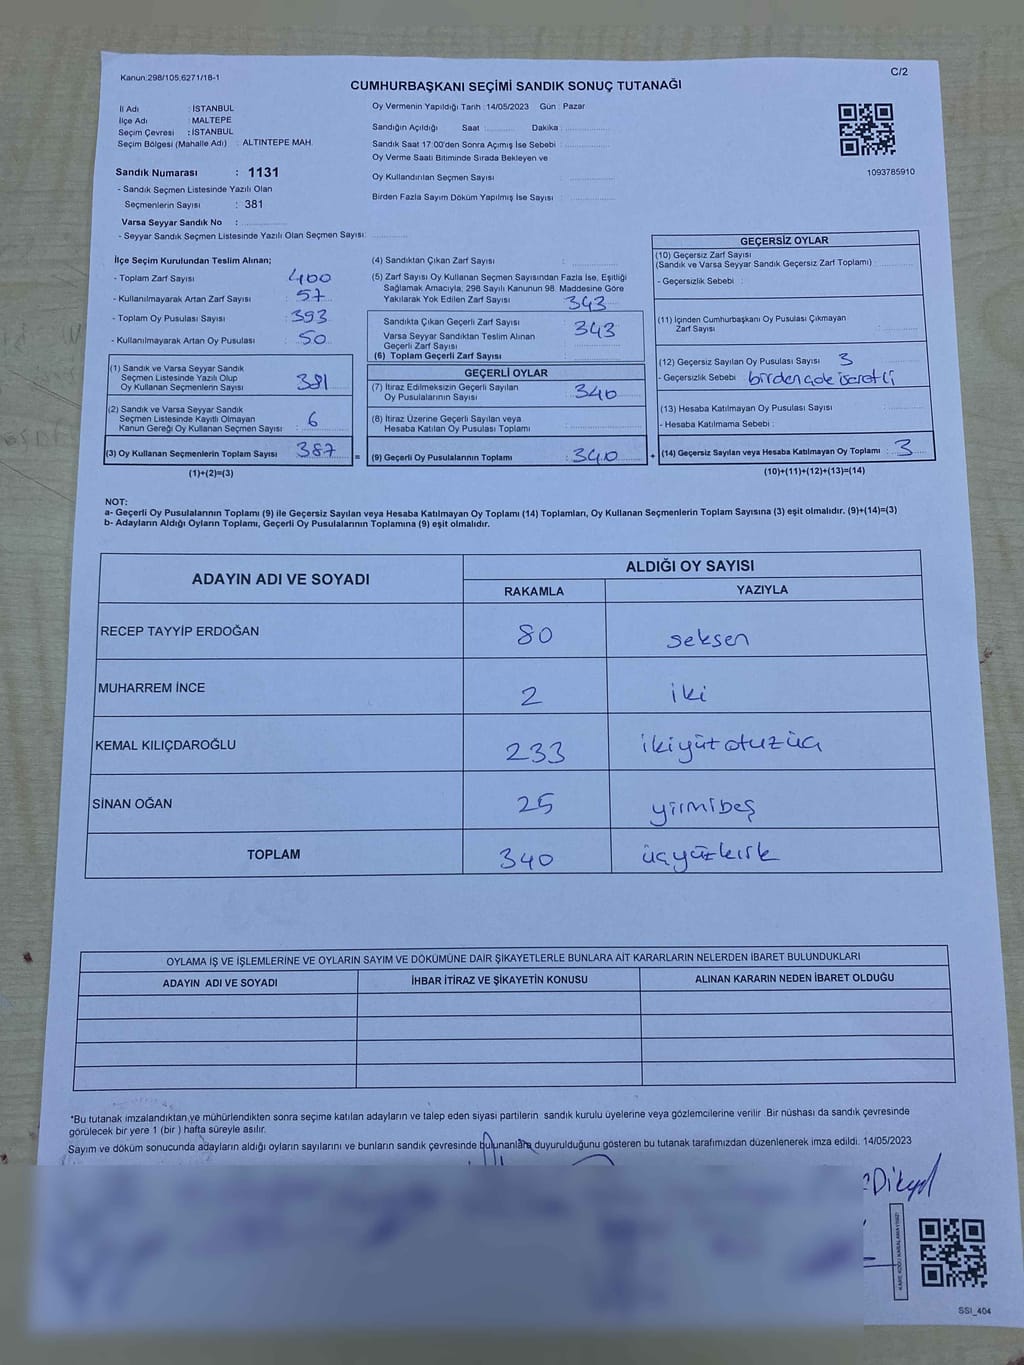 Kanun.298/105,6271/18-1
C/2
CUMHURBAŞKANI SEÇİMİ SANDIK SONUÇ TUTANAĞI
İl Adı : İSTANBUL
İlçe Adı : MALTEPE
Seçim Çevresi : İSTANBUL
Seçim Bölgesi (Mahalle Adı) : ALTINTEPE MAH.
Sandık Numarası : 1131
- Sandık Seçmen Listesinde Yazılı Olan
Seçmenlerin Sayısı : 381
Varsa Seyyar Sandık No :
- Seyyar Sandık Seçmen Listesinde Yazılı Olan Seçmen Sayısı:
Oy Vermenin Yapıldığı Tarih : 14/05/2023 Gün : Pazar
Sandığın Açıldığı Saat : Dakika :
Sandık Saat 17:00'den Sonra Açımış İse Sebebi :
Oy Verme Saati Bitiminde Sırada Bekleyen ve
Oy Kullandırılan Seçmen Sayısı :
Birden Fazla Sayım Döküm Yapılmış İse Sayısı :
1093785910
İlçe Seçim Kurulundan Teslim Alınan;
- Toplam Zarf Sayısı : 400
- Kullanılmayarak Artan Zarf Sayısı : 57
- Toplam Oy Pusulası Sayısı : 393
- Kullanılmayarak Artan Oy Pusulası : 50
(1) Sandık ve Varsa Seyyar Sandık
Seçmen Listesinde Yazılı Olup
Oy Kullanan Seçmenlerin Sayısı : 381
(2) Sandık ve Varsa Seyyar Sandık
Seçmen Listesinde Kayıtlı Olmayan
Kanun Gereği Oy Kullanan Seçmen Sayısı : 6
(3) Oy Kullanan Seçmenlerin Toplam Sayısı : 387
(1)+(2)=(3)
(4) Sandıktan Çıkan Zarf Sayısı :
(5) Zarf Sayısı Oy Kullanan Seçmen Sayısından Fazla İse, Eşitliği
Sağlamak Amacıyla, 298 Sayılı Kanunun 98. Maddesine Göre
Yakılarak Yok Edilen Zarf Sayısı : 343
Sandıkta Çıkan Geçerli Zarf Sayısı : 343
Varsa Seyyar Sandıktan Teslim Alınan
Geçerli Zarf Sayısı
(6) Toplam Geçerli Zarf Sayısı :
=
GEÇERLİ OYLAR
(7) İtiraz Edilmeksizin Geçerli Sayılan
Oy Pusulasının Sayısı : 340
(8) İtiraz Üzerine Geçerli Sayılan veya
Hesaba Katılan Oy Pusulası Toplamı :
(9) Geçerli Oy Pusulalarının Toplamı : 340
+
GEÇERSİZ OYLAR
(10) Geçersiz Zarf Sayısı
(Sandık ve Varsa Seyyar Sandık Geçersiz Zarf Toplamı) :
- Geçersizlik Sebebi :
(11) İçinden Cumhurbaşkanı Oy Pusulası Çıkmayan
Zarf Sayısı :
(12) Geçersiz Sayılan Oy Pusulası Sayısı : 3
- Geçersizlik Sebebi : birden çok işaretli
(13) Hesaba Katılmayan Oy Pusulası Sayısı :
- Hesaba Katılmama Sebebi :
(14) Geçersiz Sayılan veya Hesaba Katılmayan Oy Toplamı : 3
(10)+(11)+(12)+(13)=(14)
NOT:
a- Geçerli Oy Pusulalarının Toplamı (9) ile Geçersiz Sayılan veya Hesaba Katılmayan Oy Toplamı (14) Toplamları, Oy Kullanan Seçmenlerin Toplam Sayısına (3) eşit olmalıdır. (9)+(14)=(3)
b- Adayların Aldığı Oyların Toplamı, Geçerli Oy Pusulalarının Toplamına (9) eşit olmalıdır.
ADAYIN ADI VE SOYADI
ALDIĞI OY SAYISI
RAKAMLA YAZIYLA
RECEP TAYYİP ERDOĞAN 80 seksen
MUHARREM İNCE 2 iki
KEMAL KILIÇDAROĞLU 233 ikiyüzotuzüç
SİNAN OĞAN 25 yirmibeş
TOPLAM 340 üçyüzkırk
OYLAMA İŞ VE İŞLEMLERİNE VE OYLARIN SAYIM VE DÖKÜMÜNE DAİR ŞİKAYETLERLE BUNLARA AİT KARARLARIN NELERDEN İBARET BULUNDUKLARI
ADAYIN ADI VE SOYADI İHBAR İTİRAZ VE ŞİKAYETİN KONUSU ALINAN KARARIN NEDEN İBARET OLDUĞU
*Bu tutanak imzalandıktan ve mühürlendikten sonra seçime katılan adayların ve talep eden siyasi partilerin sandık kurulu üyelerine veya gözlemcilerine verilir .Bir nüshası da sandık çevresinde
görülecek bir yere 1 (bir ) hafta süreyle asılır.
Sayım ve döküm sonucunda adayların aldığı oyların sayılarını ve bunların sandık çevresinde bulunanlara duyurulduğunu gösteren bu tutanak tarafımızdan düzenlenerek imza edildi. 14/05/2023
SSI_404